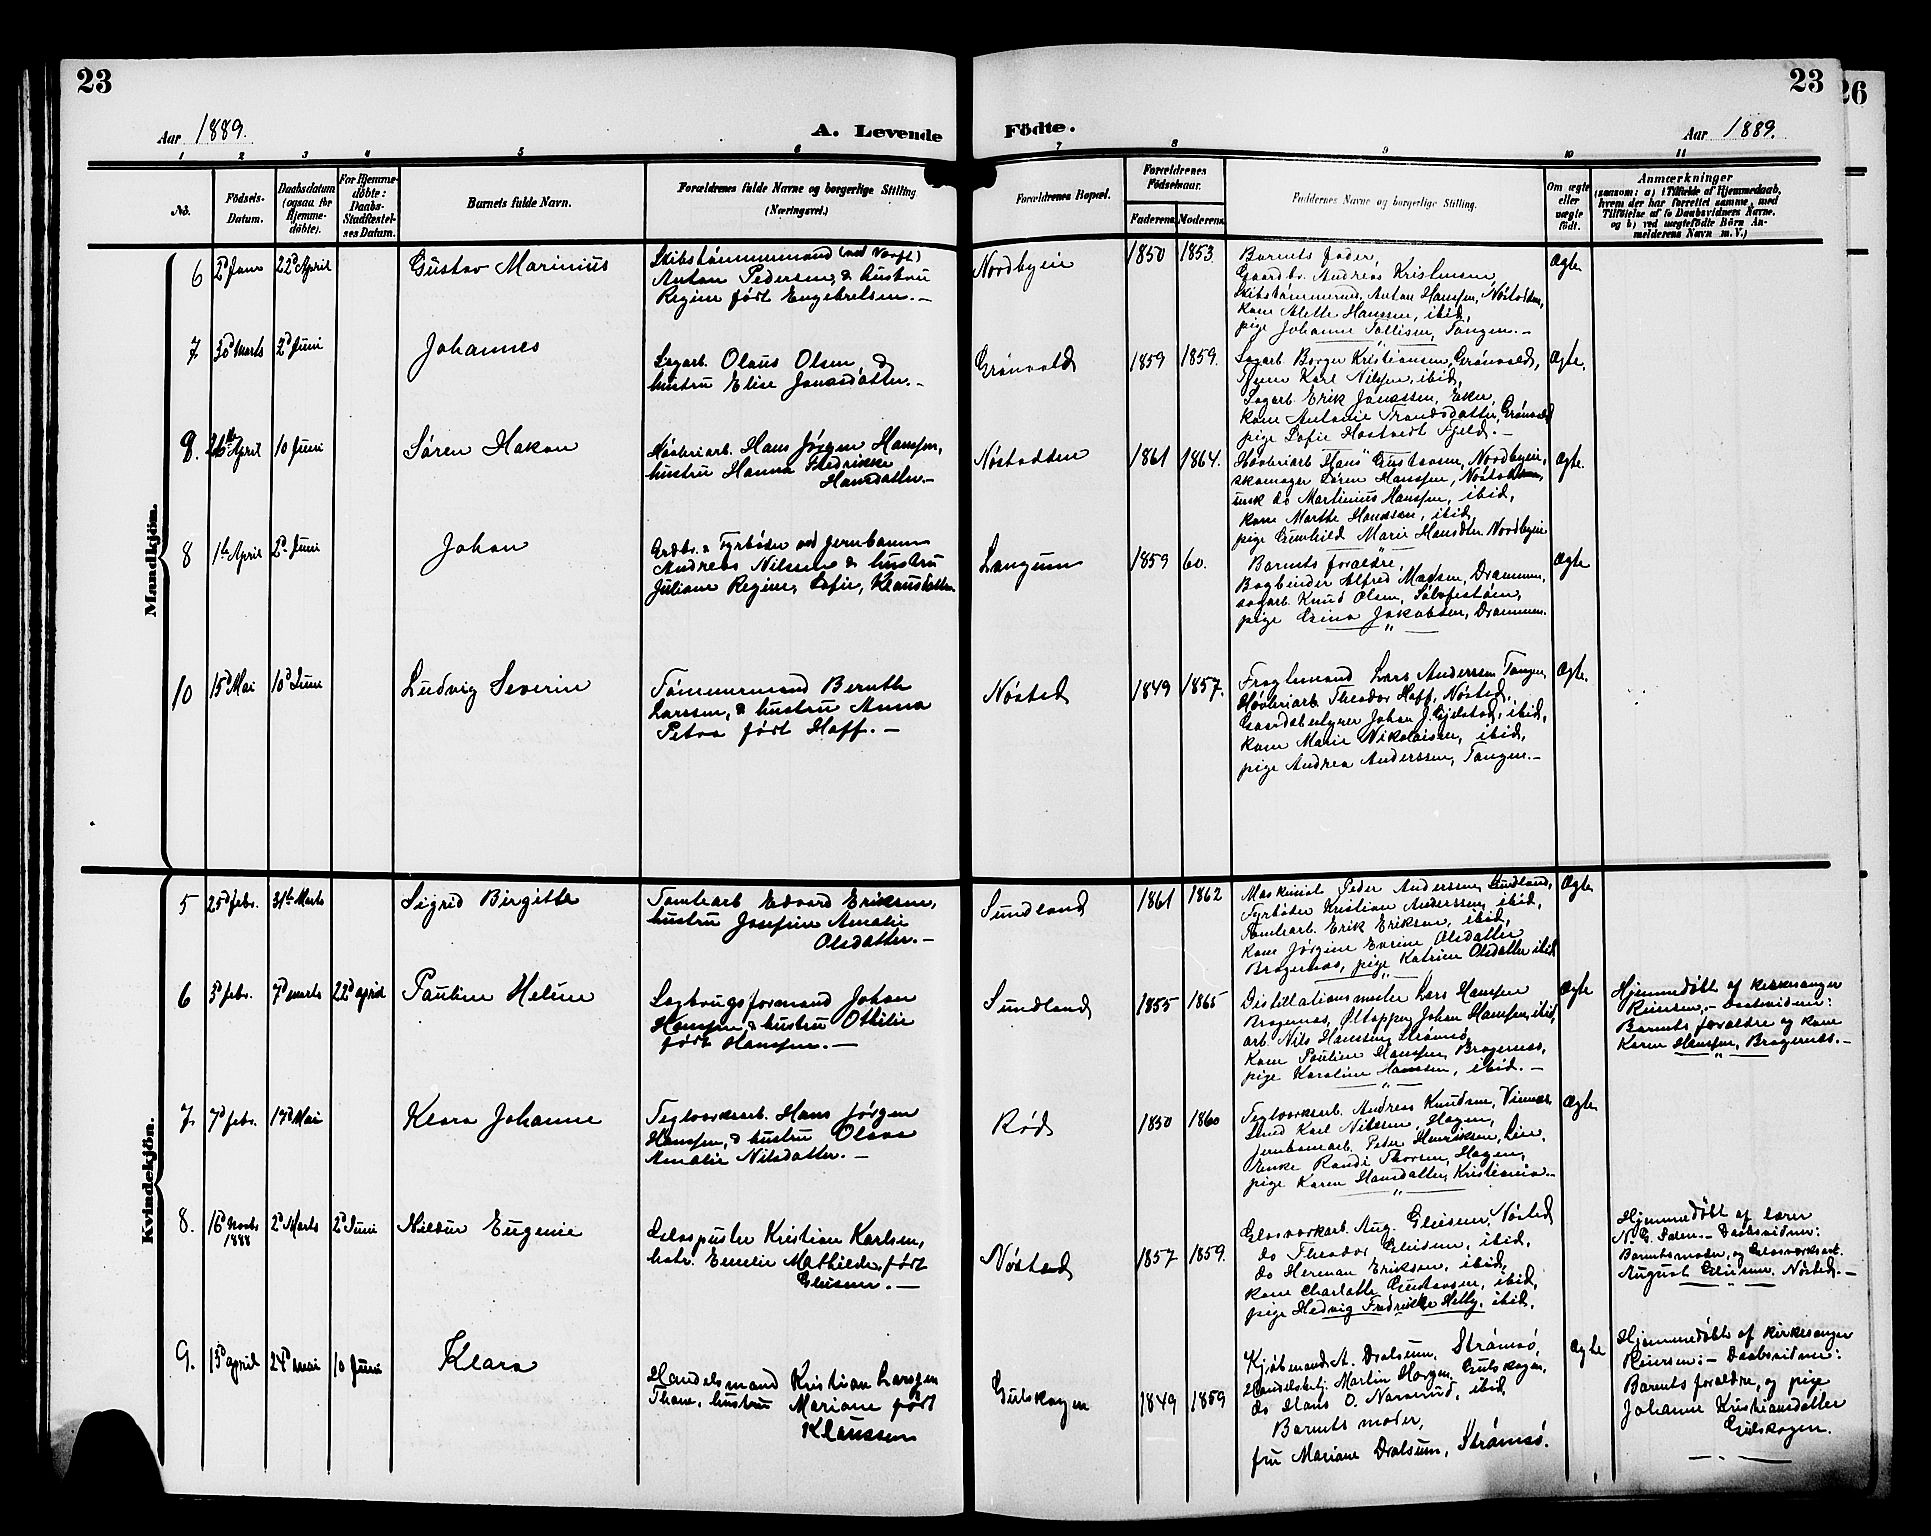 23
23
26
Aar 1889.
A. Levende Födte.
Aar 1889.
1 2 3 4 5 6 7 8 9 10 11
No.
Födsels-
Datum.
Daabsdatum
(ogsaa for
Hjemme-
döbte).
For Hjemme-
döbte:
Daabs-
Stadfæstel-
ses Datum.
Barnets fulde Navn.
Forældrenes fulde Navne og borgerlige Stilling
(Næringsvei.)
Forældrenes Bopæl.
Forældrenes
Födselsaar.
Faderens. Moderens.
Faddernes Navne og borgerlige Stilling.
Om ægte
eller
uægte
födt.
Anmærkninger
(saasom: a) i Tilfælde af Hjemmedaab,
hvem der har forrettet samme, med
Tilföielse af to Daabsvidners Navne,
og b) ved uægtefödte Börn An-
melderens Navn m. V.)
Mandkjön.
6 2d Janr 22d April Gustav Marinius
Skibstømmermand (ved Værft)
Anton Pedersen, & hustru
Regine født Engebretsen. —
Nordbyeie 1850 1853
Barnets fader,
Gaardbr. Andreas Kristensen,
Skibstømmermd. Anton Hanssen, Nøstodden,
kone Alette Hanssen, ibid,
pige Johanne Tollisen, Tangen. —
Ægte
7 30d Marts 2d Juni Johannes
Sagarb. Olaus Olsen &
hustru Elise Jonasdatter. —
Grønvold 1859 1859.
Sagarb. Borger Kristiansen, Grønvold,
Karl Nilsen, ibid,
Sagarb Erik Jonassen, Eker,
kone Antonie Trondsdatter, Grønvold
pige Sofie Hostvedt Fjeld. —
Ægte.
9. 26th April 10 Juni Søren Hakon
Høvleriarb. Hans Jørgen Hanssen,
hustru Hanna Fredrikke
Hansdatter. —
Nøstodden 1861 1864.
Høvleriarb Hans Gustavsen, Nordbyeie,
skomager Søren Hanssen, Nøstodden,
unk do Martinius Hanssen, ibid,
kone Marthe Hanssen, ibid,
pige Gunhild Marie Hansdtr Nordbyeie
Ægte.
8 1ste April 2d Juni Johan
Grdbr. & Fyrbøder ved Jernbanen
Andreas Nilssen & hustru
Juliane Regine, Sofie, Klausdatter.
Langum 1859 60.
Barnets forældre,
Bogbinder Alfred Madsen, Drammen,
sagarb. Knud Olsen, Sølvfestøen,
pige Gina Jakobsen, Drammen.
Ægte
10 15d Mai 10d Juni Ludvig Severin
Tømmermand Bernth
Larssen, & hustru Anna
Petra født Hoff. —
Nøsted 1849 1857.
Fragtemand Lars Anderssen Tangen,
Høvleriarb Theodor Hoff, Nøsted,
Gaardsbestyrer Johan J. Gjelstad, ibid,
kone Marie Nikolaisen, ibid,
pige Andrea Anderssen, Tangen. —
Ægte.
Kvindekjön.
5 25d febr. 31te Marts Sigrid Birgitte
Tomtearb Edvard Eriksen,
hustru Josefine Amalie
Olsdatter. —
Sundland 1861 1862
Maskinist Peder Anderssen, Sundland,
Fyrbøder Kristian Anderssen, ibid,
Tomtearb. Erik Eriksen, ibid,
kone Jørgine Evrine Olsdatter
Bragernæs, pige Katrine Olsdatter ibid
Ægte
6 3d febr. 7d marts 22d april Pauline Helene
Sagbrugsformand Johan
Hanssen, & hustru Othilie
født Hanssen. —
Sundland 1855 1865
Distillationsmester Lars Hanssen
Bragernæs, Øltapper Johan Hanssen, ibid,
arb Nils Hanssen, Strømsø,
Kone Pauline Hanssen, Bragernæs,
pige Karoline Hanssen, ibid. —
Ægte
Hjemmedøbt af kirkesanger
Reiersen, — Daabsvidner:
Barnets forældre og kone
Karen Hanssen, Bragernæs. —
7. 7d febr. 17d Mai Klara Johanne
Teglværksarb. Hans Jørgen
Hanssen, & hustru Olava
Amalie Nilsdatter. —
Rød 1850 1860
Teglværksarb. Andreas Knudsen, Vinnes,
Smed Karl Nilssen, Hagen,
Jernbanearb. Peter Henriksen, Lier,
Enke Randi Thorsen, Hagen,
pige Karen Hansdatter, Kristiania —
Ægte
8. 16d Novbr 1888 2d Marts 2d Juni Nielsine Eugenie
Glaspuster Kristian Karlsen,
hstr. Emelie Mathilde, født
Gleisner. —
Nøsted 1857 1859.
Glasværkarb. Aug. Gleisner, Nøsted
do Theodor Gleisner, ibid,
do Herman Eriksen, ibid,
kone Charlotte Gustavsen, ibid,
pige Hedvig Fredrikke Helly, ibid,
Hjemmedøbt af lærer
N. G. Solem. — Daabsvidner:
Barnets moder, og Glasværksarb.
August Gleisner, Nøsted. —
9. 13d april 24d mai 10 Juni Klara
Handelsmand Kristian Larssen
Thane, hustru Mariane født
Klaussen
Gulskogen 1849 1859
Kjøbmand A. Dralsum, Strømsø,
Handelsbetj. Martin Horgen, Gulskogen,
do Hans O. Narverud, ibid,
Barnets moder,
fru Mariane Dralsum, Strømsø.
Ægte
Hjemmedøbt af kirkesanger
Reiersen: — Daabsvidner:
Barnets forældre, og pige
Johanne Kristiansdatter
Gulskogen.